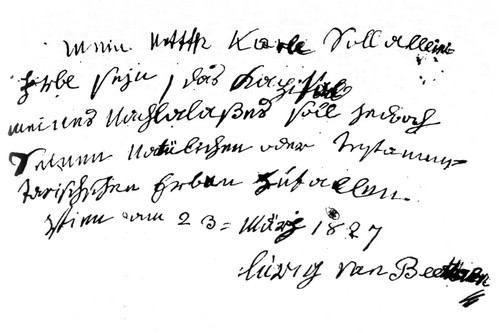 mein Neffe Karle Soll alleini
Erbe seyn, das Kapital
meines Nachlalaßes soll jedoch
Seinen Natülichen oder Testamen=
tarischschen Erben zufallen.
Wien am 23= März 1827
luwig van Beethoven